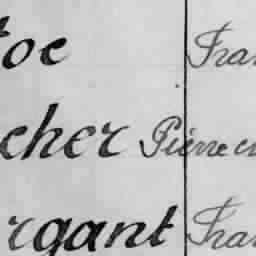 oe Fran
cher Pierre
rgant Fran